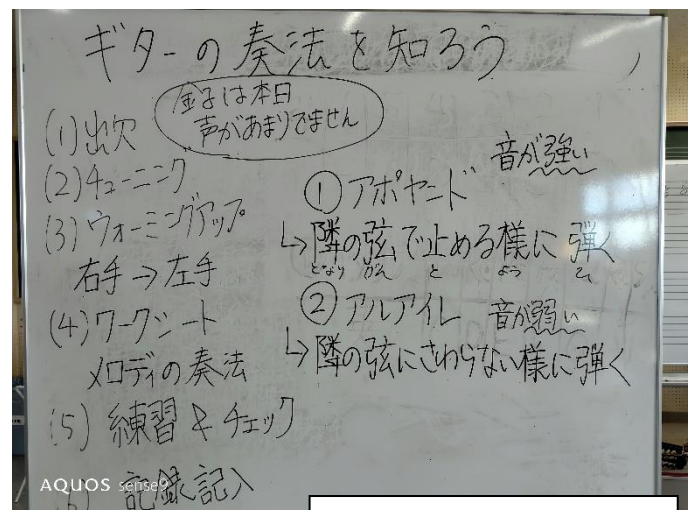 ギターの奏法を知ろう
金子は本日
声があまりでません
(1) 出欠
(2) チューニング
(3) ウォーミングアップ
右手→左手
(4) ワークシート
メロディの奏法
(5) 練習&チェック
記録記入
音が強い
① アポヤンド
↳隣の弦で止める様に弾く
となり げん と よう ひ
② アルアイレ 音が弱い
↳隣の弦にさわらない様に弾く
AQUOS sense9